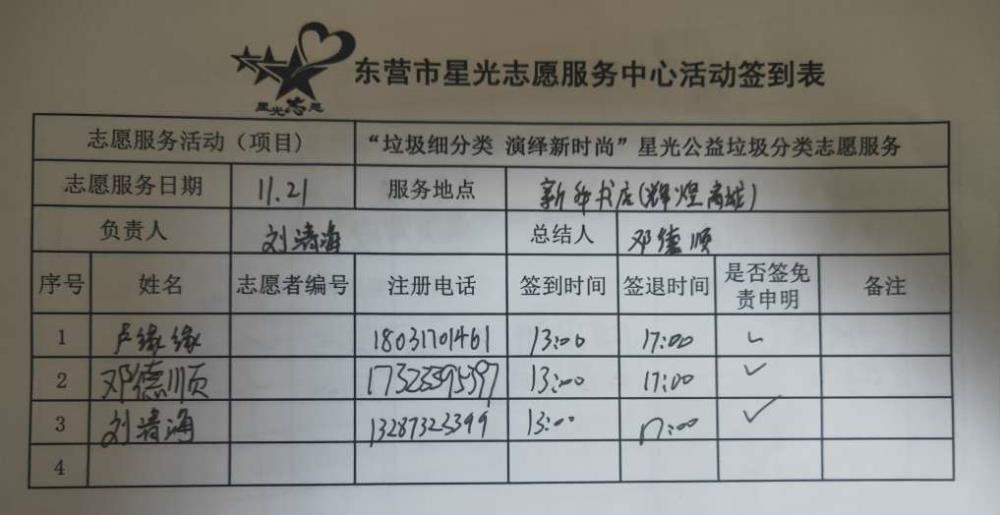 星光志愿
东营市星光志愿服务中心活动签到表
志愿服务活动（项目） “垃圾细分类 演绎新时尚”星光公益垃圾分类志愿服务
志愿服务日期 11.21 服务地点 新华书店(辉煌商城)
负责人 刘清海 总结人 邓德顺
序号 姓名 志愿者编号 注册电话 签到时间 签退时间 是否签免责申明 备注
1 卢缘缘 18031701461 13:00 17:00 ✓
2 邓德顺 13:00 17:00 ✓
3 刘清海 13287323399 13:00 17:00 ✓
4